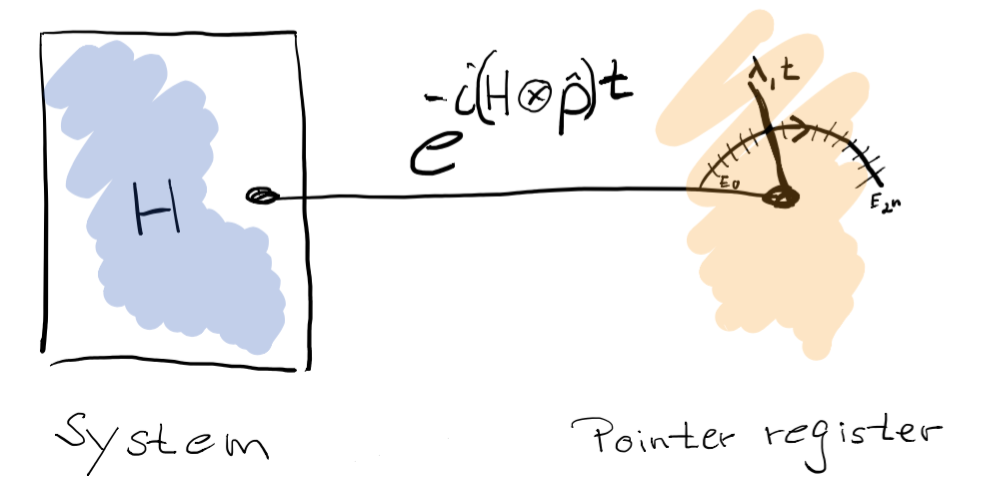 e^{-i(H⊗p̂)t}
λ, t
H
E₀
E₂ₙ
System
Pointer register